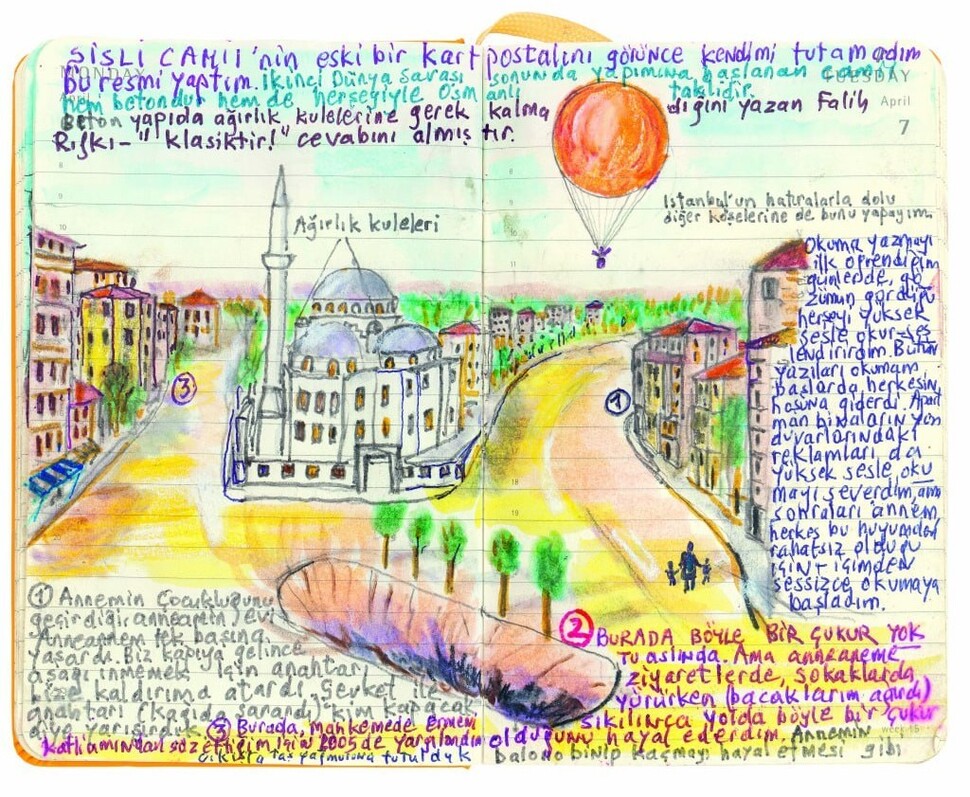 ŞİŞLİ CAMİİ'nin eski bir kart postalını görünce kendimi tutamadım
MONDAY
TUESDAY
bu resmi yaptım. İkinci Dünya Savaşı sonunda yapımına başlanan cami
hem betondur hem de herşeyiyle Osmanlı taklidir.
April
7
Beton yapıda ağırlık kulelerine gerek kalmadığını yazan Falih
Rıfkı - "klasiktir!" cevabını almıştır.
İstanbul'un hatıralarla dolu
diğer köşelerine de bunu yapayım.
Ağırlık kuleleri
Okuma yazmayı
ilk öğrendiğim
günlerde, gö
zümün gördüğü
herşeyi yüksek
sesle okur-ses
lendirirdim. Bütün
yazıları okumam
başlarda herkesin
hoşuna giderdi. Apart
man binaların yan
duvarlarındaki
reklamları da
yüksek sesle oku
mayı severdim, ama
sonraları annem
herkes bu huyumdan
rahatsız olduğu
için + içimden
sessizce okumaya
başladım.
3
1
① Annemin çocukluğunu
geçirdiği anneannemin evi
Anneannem tek başına
yaşardı. Biz kapıya gelince
aşağı inmemek için anahtarı
bize kaldırıma atardı. Şevket ile
anahtarı (kağıda sarardı) kim kapacak
diye yarışırdık.
② BURADA BÖYLE BİR ÇUKUR YOK
TU aslında. Ama anneanneme
ziyaretlerde, sokaklarda
yürürken (bacaklarım ağırdı)
sıkılınca yolda böyle bir çukur
olduğunu hayal ederdim. Annemin
balona binip kaçmayı hayal etmesi gibi
③ Burada, mahkemede Ermeni
katliamından söz ettiğim için 2005'de yargılandım
çıkışta taş yağmuruna tutulduk
week 15